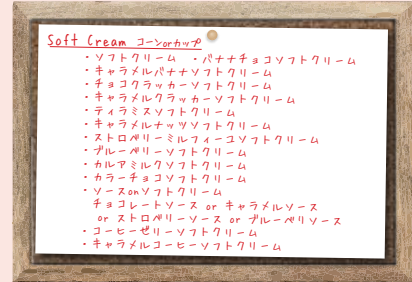 Soft Cream コーンorカップ
・ソフトクリーム ・バナナチョコソフトクリーム
・キャラメルバナナソフトクリーム
・チョコクラッカーソフトクリーム
・キャラメルクラッカーソフトクリーム
・ティラミスソフトクリーム
・キャラメルナッツソフトクリーム
・ストロベリーミルフィーユソフトクリーム
・ブルーベリーソフトクリーム
・カルアミルクソフトクリーム
・カラーチョコソフトクリーム
・ソースonソフトクリーム
チョコレートソース or キャラメルソース
or ストロベリーソース or ブルーベリソース
・コーヒーゼリーソフトクリーム
・キャラメルコーヒーソフトクリーム